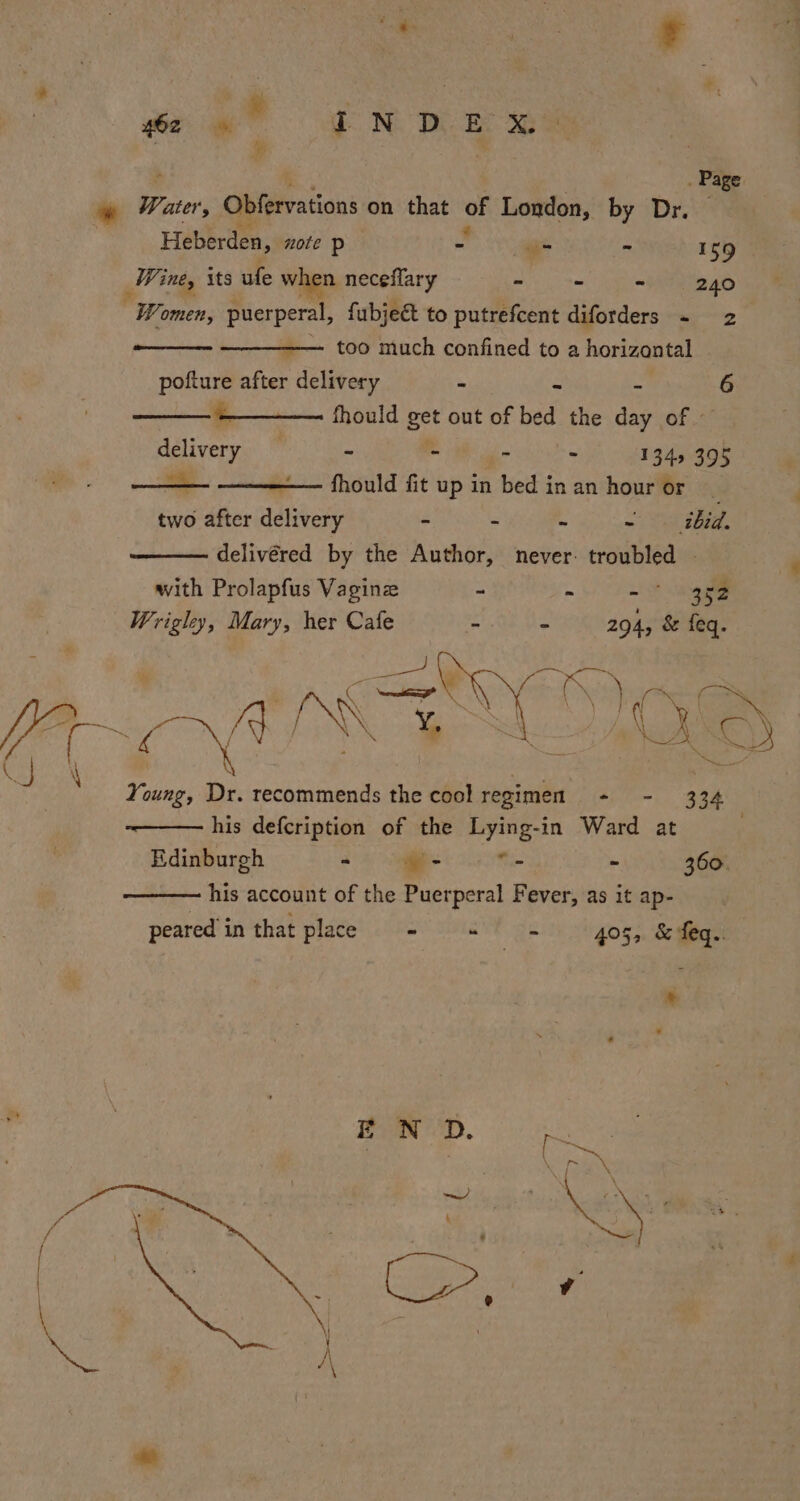 462 I N D E X.
Page
Water, Obſervations on that of London, by Dr.
Heberden, note p - - - 159
Wine, its uſe when neceſſary - - - 240
Women, puerperal, ſubject to putreſcent diſorders - 2
——— ——— too much confined to a horizontal
poſture after delivery - - - 6
——— ——— ſhould get out of bed the day of
delivery - - - - 134, 395
——— ——— ſhould ſit up in bed in an hour or
two after delivery - - - - ibid.
——— delivéred by the Author, never troubled
with Prolapſus Vaginæ - - - 352
Wrigley, Mary, her Caſe - - 294, & ſeq.
Y.
Young, Dr. recommends the cool regimen - - 334
——— his deſcription of the Lying-in Ward at
Edinburgh - - - - 360.
——— his account of the Puerperal Fever, as it ap-
peared in that place - - - 405, & ſeq.
E N D.